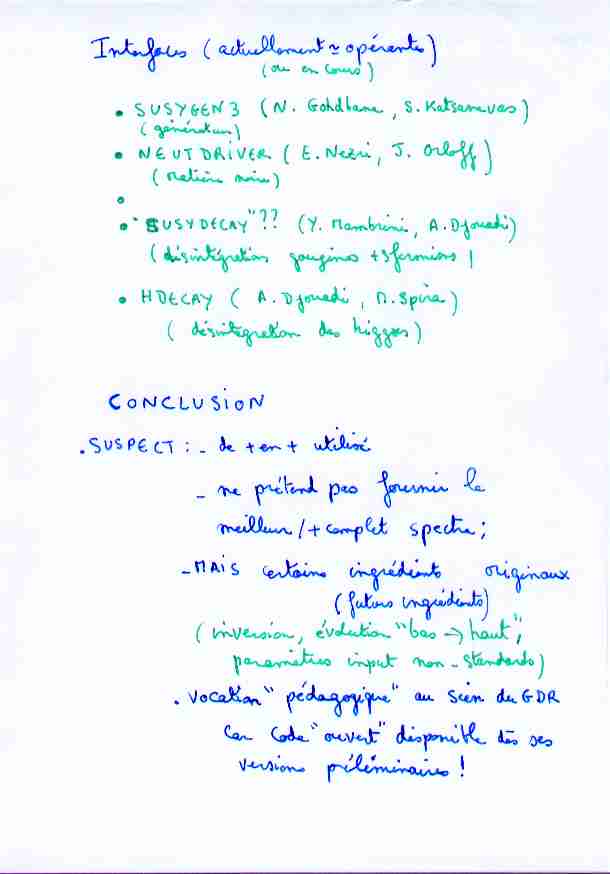 Interfaces (actuellement ≈ opérantes)
(ou en cours)
• SUSYGEN3 (N. Ghodbane, S. Katsanevas)
(génération)
• NEUTDRIVER (E. Nezri, J. Orloff)
(matière noire)
•
• "SUSYDECAY"?? (Y. Mambrini, A. Djouadi)
(désintégration gauginos + sfermions)
• HDECAY (A. Djouadi, M. Spira)
(désintégration des higgses)
CONCLUSION
• SUSPECT : - de + en + utilisé
- ne prétend pas fournir le
meilleur / + complet spectre ;
- MAIS certains ingrédients originaux
(futurs ingrédients)
(inversion, évolution "bas → haut",
paramètres input non-standards)
• vocation "pédagogique" au sein du GDR
car code "ouvert" disponible dès ses
versions préliminaires !